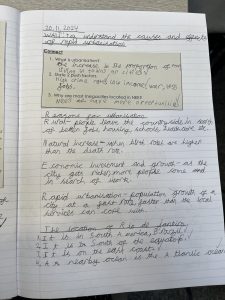 20.11.2024
WALT: to understand the causes and effects
of rapid urbanisation
Connect
1. What is urbanisation?
the increase in the proportion of people
living in towns or cities
2. State 2 push factors
high crime rates, low income, war, less
jobs.
3. Why are most megacities located in NEEs?
NEEs
more
Reasons for urbanisation
Rural - people leave the countryside in search
of better jobs, housing, schools, healthcare etc.
Natural increase - when birth rates are higher
than the death rate.
Economic investment and growth - as the
city gets richer, more people come and
in search of work.
Rapid urbanisation - population growth of a
city at a fast rate, faster than the local
services can cope with.
The location of Rio de Janeiro
1. It is in South America, Brazil
2. It is to South of the equator.
3. It is on the east coast.
4. A nearby ocean is the Atlantic ocean